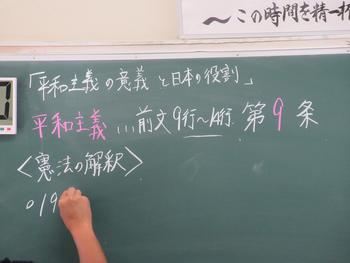 〜この時間を精一杯
「平和主義の意義と日本の役割」
平和主義…前文9行〜14行 第9条
<憲法の解釈>
○19